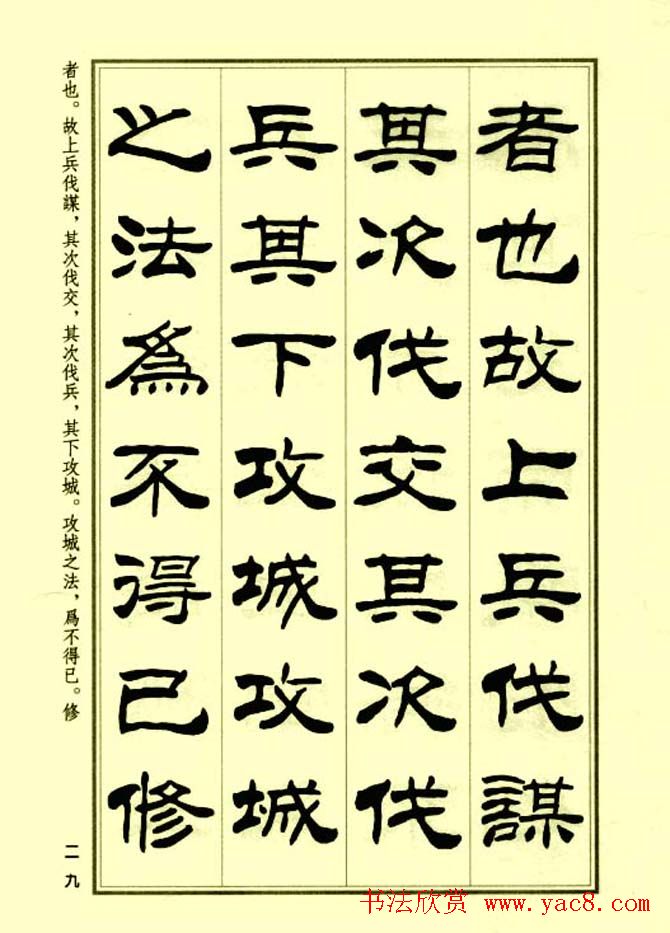 者也故上兵伐謀
其次伐交其次伐
兵其下攻城攻城
之法爲不得已修
者也。故上兵伐謀，其次伐交，其次伐兵，其下攻城。攻城之法，爲不得已。修
二九
书法欣赏 www.yac8.com